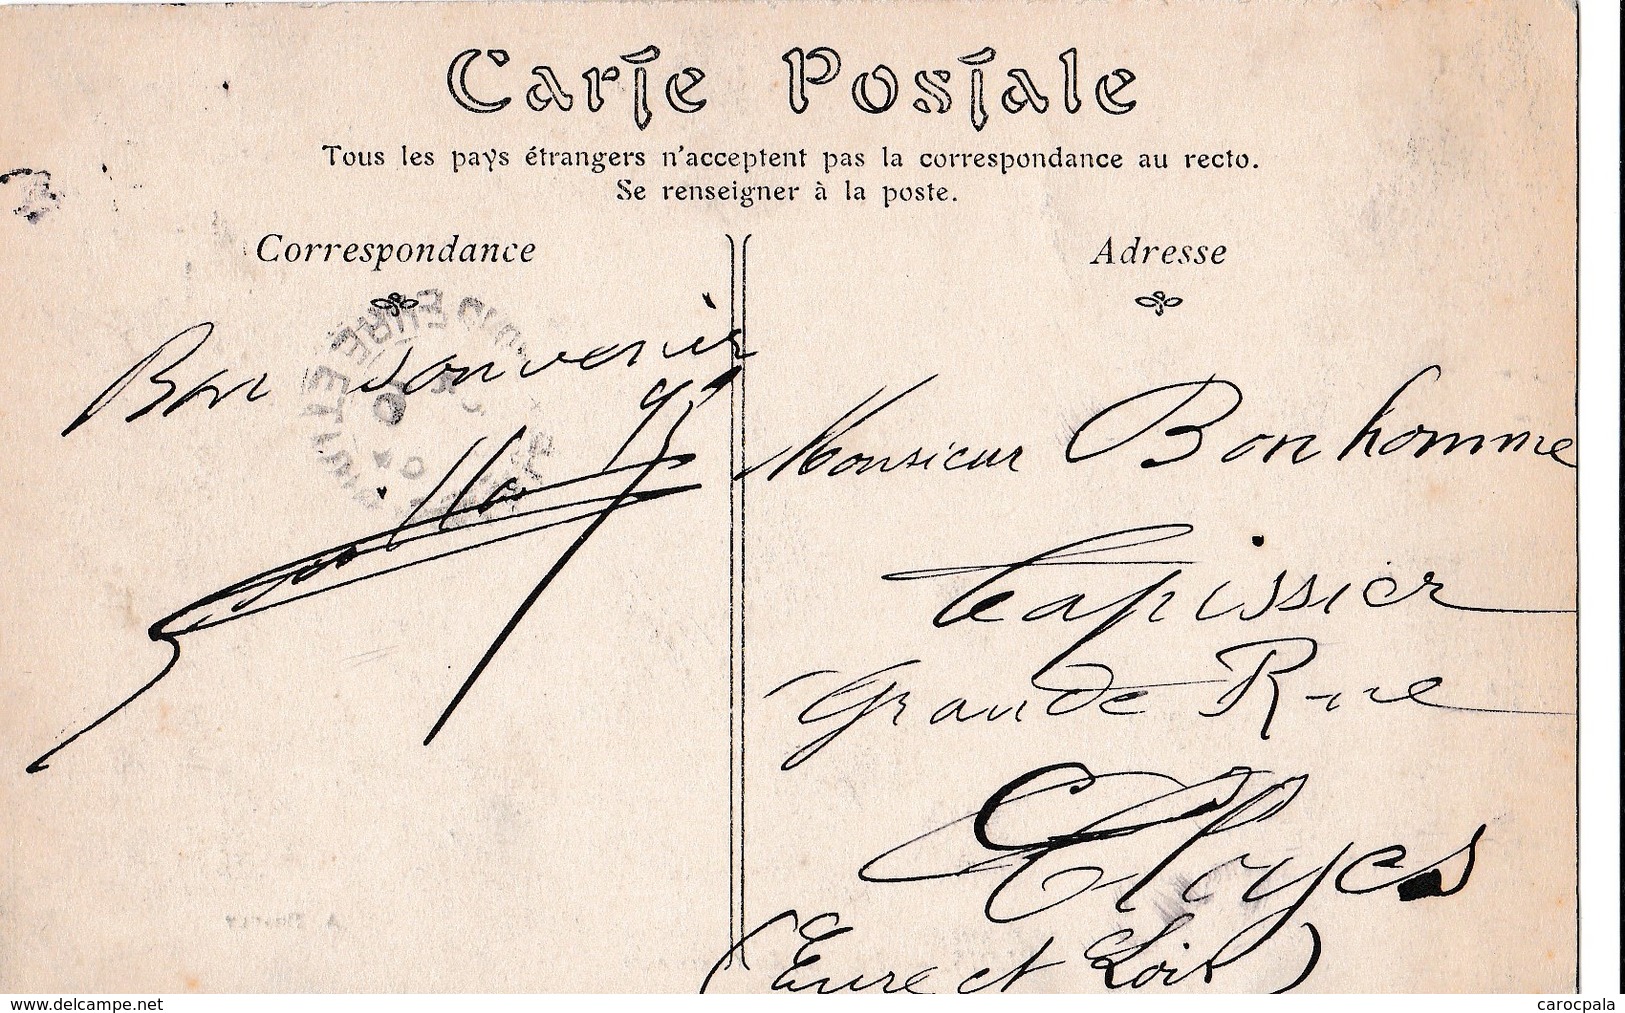 Carte Postale
Tous les pays étrangers n'acceptent pas la correspondance au recto.
Se renseigner à la poste.
Correspondance
Bon souvenir
Adresse
Monsieur Bonhomme
tapissier
Grande Rue
Cloyes
(Eure et Loir)
delcampe.net
carocpala